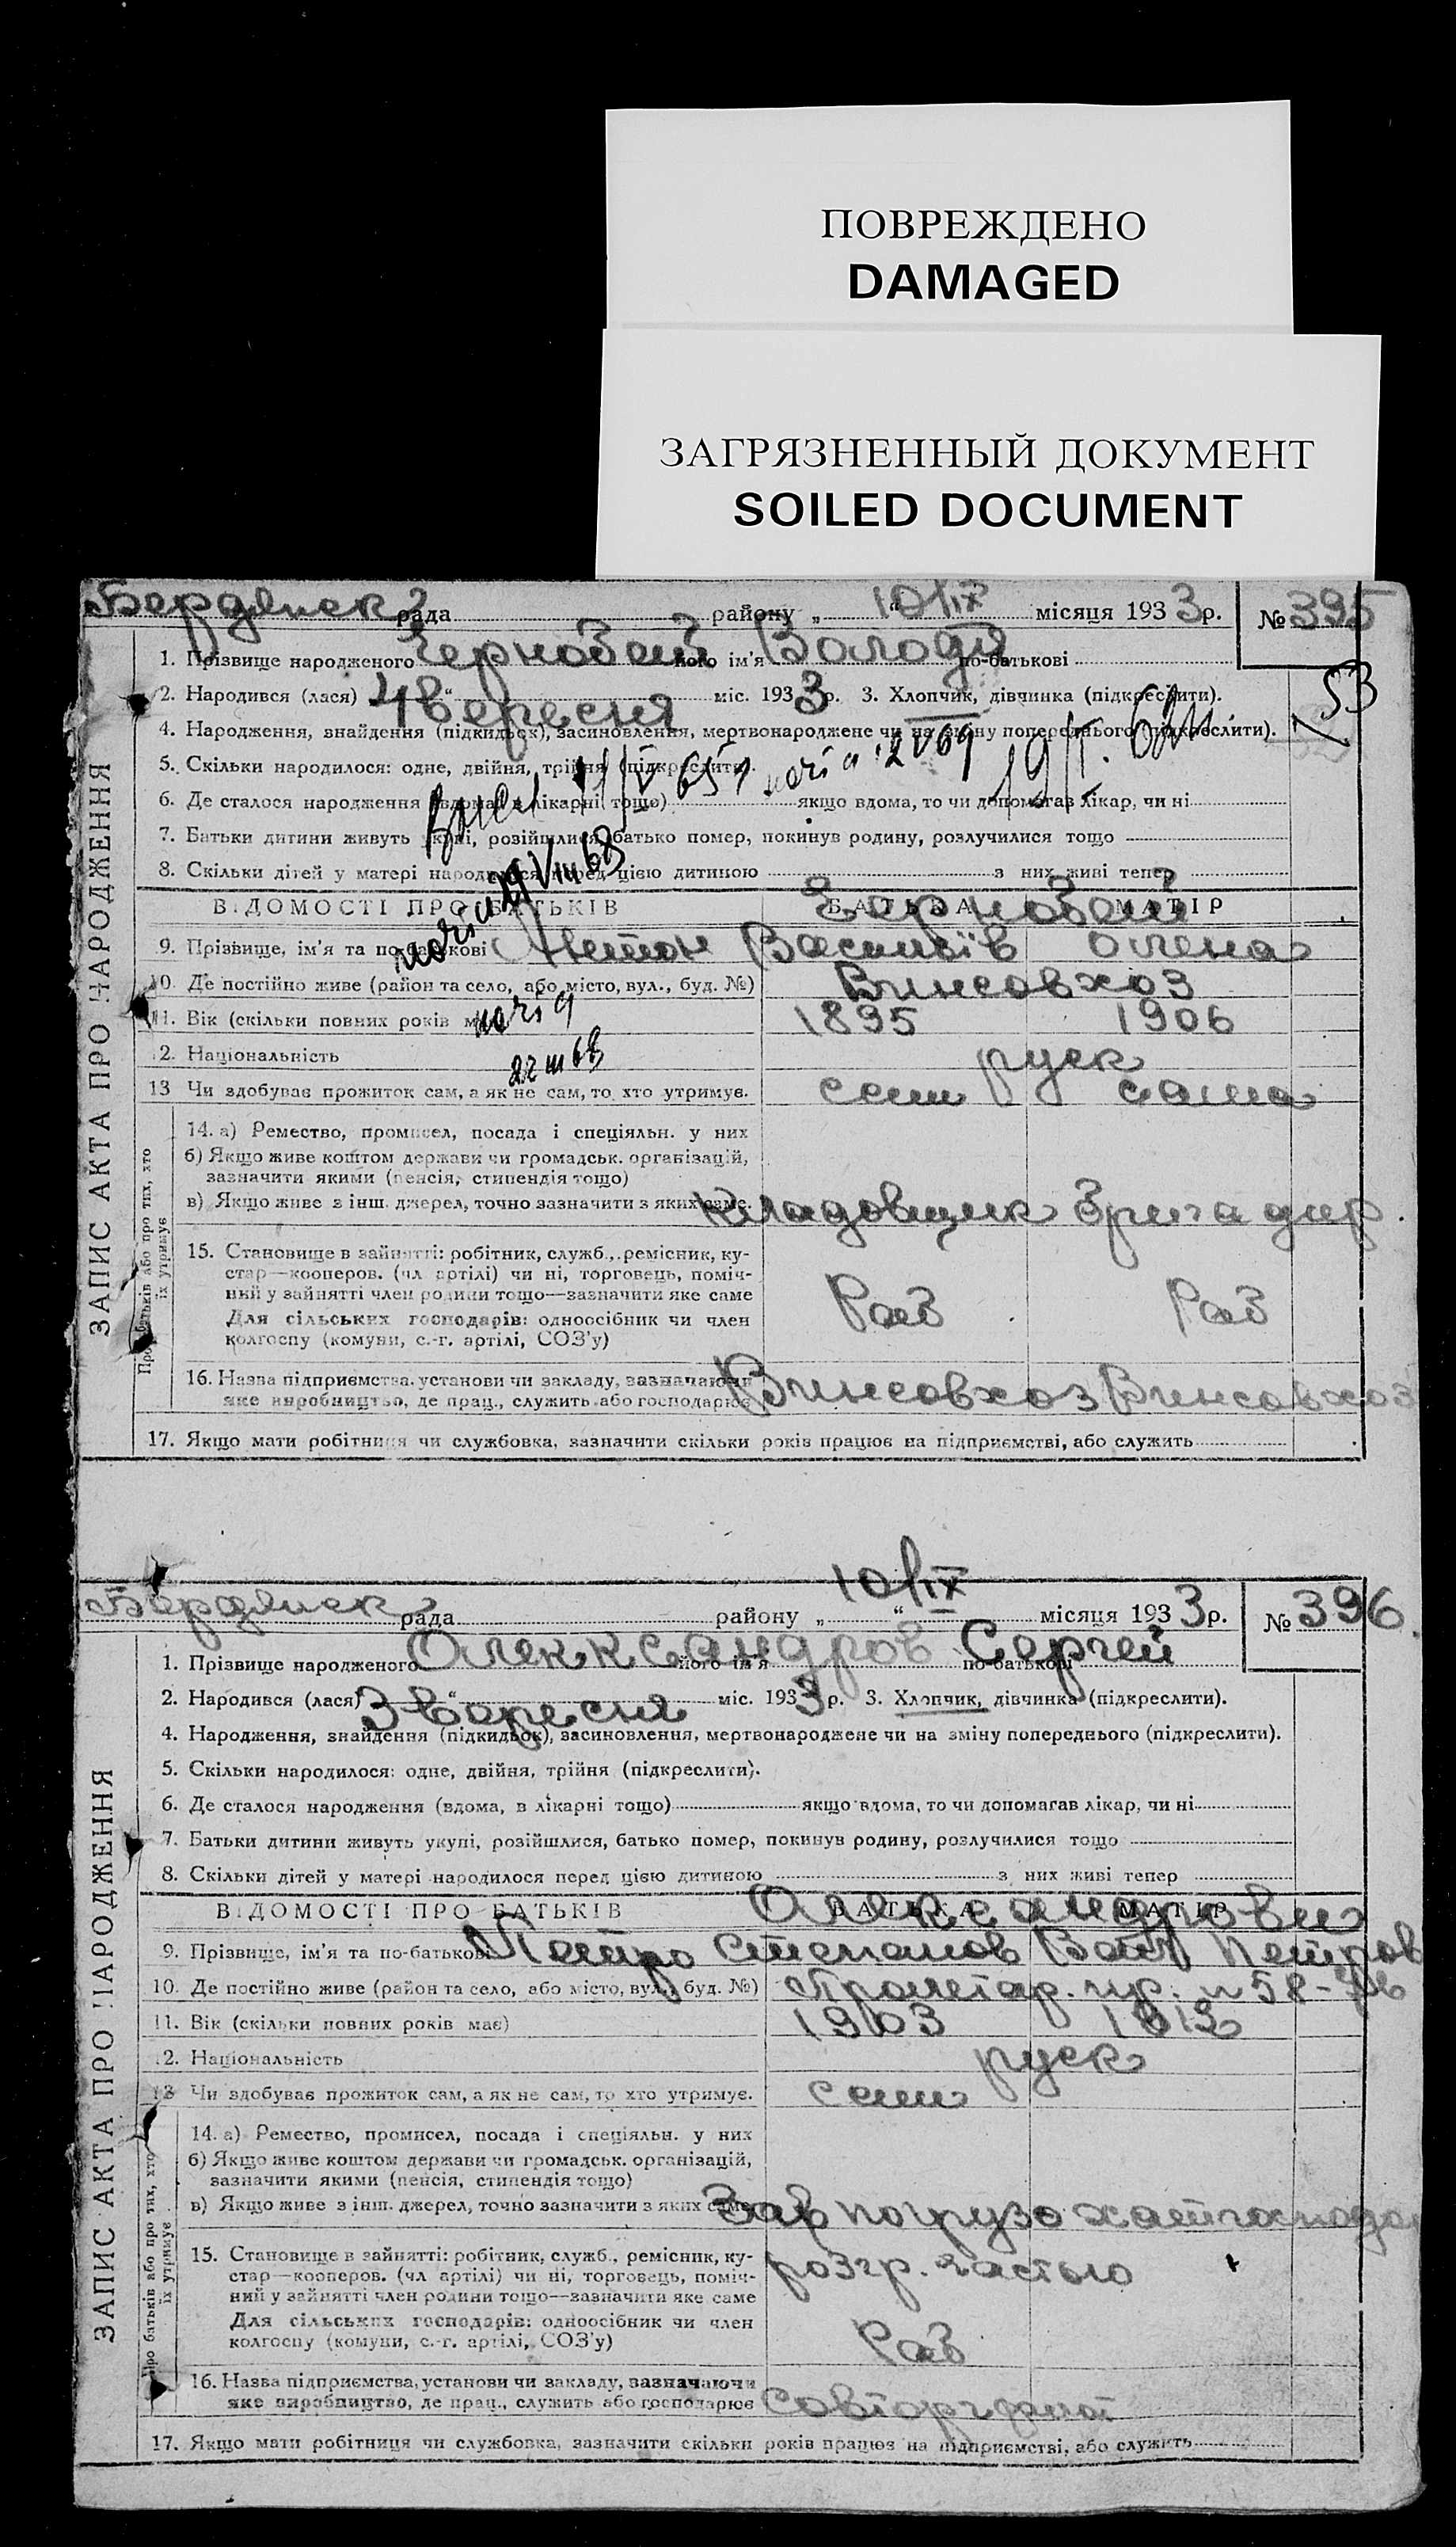 ПОВРЕЖДЕНО
DAMAGED
ЗАГРЯЗНЕННЫЙ ДОКУМЕНТ
SOILED DOCUMENT
ЗАПИС АКТА ПРО НАРОДЖЕННЯ
Бердянск рада району „ 10/IX “ місяця 1933 р. № 395
1. Прізвище народженого Черновай його ім'я Володя по-батькові
53
2. Народився (лася) 4 вересня міс. 1933 р. 3. Хлопчик, дівчинка (підкреслити).
4. Народження, знайдення (підкидьок), засиновлення, мертвонароджене чи на зміну попереднього (підкреслити).
5. Скільки народилося: одне, двійня, трійня (підкреслити).
6. Де сталося народження (вдома, в лікарні тощо) якщо вдома, то чи допомагав лікар, чи ні
7. Батьки дитини живуть укупі, розійшлися, батько помер, покинув родину, розлучилися тощо
8. Скільки дітей у матері народилося перед цією дитиною з них живі тепер
ВІДОМОСТІ ПРО БАТЬКІВ БАТЬКА МАТІР
Черновай
9. Прізвище, ім'я та по-батькові Антон Васильїв Олена
10. Де постійно живе (район та село, або місто, вул., буд. №) Винсовхоз
11. Вік (скільки повних років має) 1895 1906
12. Національність руск
22 III 68
13 Чи здобуває прожиток сам, а як не сам, то хто утримує. сам сама
Про батьків або про тих, хто їх утримує
14. а) Ремество, промисел, посада і спеціяльн. у них
б) Якщо живе коштом держави чи громадськ. організацій,
зазначити якими (пенсія, стипендія тощо)
в) Якщо живе з інш. джерел, точно зазначити з яких саме. Кладовщик Бригадир.
15. Становище в зайнятті: робітник, служб., ремісник, ку-
стар—кооперов. (чл артілі) чи ні, торговець, поміч-
ний у зайнятті член родини тощо—зазначити яке саме
Раб Раб
Для сільських господарів: одноосібник чи член
колгоспу (комуни, с.-г. артілі, СОЗ'у)
16. Назва підприємства, установи чи закладу, зазначаючи
яке виробництво, де прац., служить або господарює Винсовхоз Винсовхоз
17. Якщо мати робітниця чи службовка, зазначити скільки років працює на підприємстві, або служить
ЗАПИС АКТА ПРО НАРОДЖЕННЯ
Бердянск рада району „ 10/IX “ місяця 1933 р. № 396.
1. Прізвище народженого Олександров його ім'я Сергей по-батькові
2. Народився (лася) 3 вересня міс. 1933 р. 3. Хлопчик, дівчинка (підкреслити).
4. Народження, знайдення (підкидьок), засиновлення, мертвонароджене чи на зміну попереднього (підкреслити).
5. Скільки народилося: одне, двійня, трійня (підкреслити).
6. Де сталося народження (вдома, в лікарні тощо) якщо вдома, то чи допомагав лікар, чи ні
7. Батьки дитини живуть укупі, розійшлися, батько помер, покинув родину, розлучилися тощо
8. Скільки дітей у матері народилося перед цією дитиною з них живі тепер
ВІДОМОСТІ ПРО БАТЬКІВ БАТЬКА МАТІР
Олександрови
9. Прізвище, ім'я та по-батькові Петро Степанов Петров
10. Де постійно живе (район та село, або місто, вул., буд. №) Пролетар. пр.
11. Вік (скільки повних років має) 1903
12. Національність руск
13 Чи здобуває прожиток сам, а як не сам, то хто утримує. сам
Про батьків або про тих, хто їх утримує
14. а) Ремество, промисел, посада і спеціяльн. у них
б) Якщо живе коштом держави чи громадськ. організацій,
зазначити якими (пенсія, стипендія тощо)
в) Якщо живе з інш. джерел, точно зазначити з яких саме. Зав погрузо хатгоспода
15. Становище в зайнятті: робітник, служб., ремісник, ку- розгр. частью
стар—кооперов. (чл артілі) чи ні, торговець, поміч-
ний у зайнятті член родини тощо—зазначити яке саме
Для сільських господарів: одноосібник чи член
колгоспу (комуни, с.-г. артілі, СОЗ'у) Раб
16. Назва підприємства, установи чи закладу, зазначаючи
яке виробництво, де прац., служить або господарює
17. Якщо мати робітниця чи службовка, зазначити скільки років працює на підприємстві, або служить